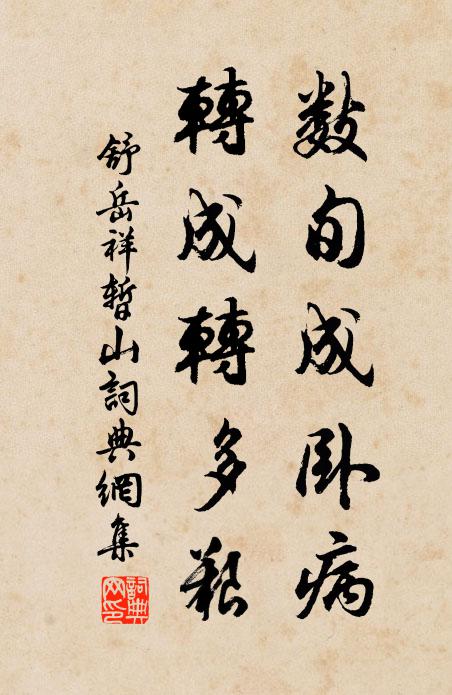 数旬成卧病
轉成轉多艱
舒岳祥暫山詞典網集
詞典网印